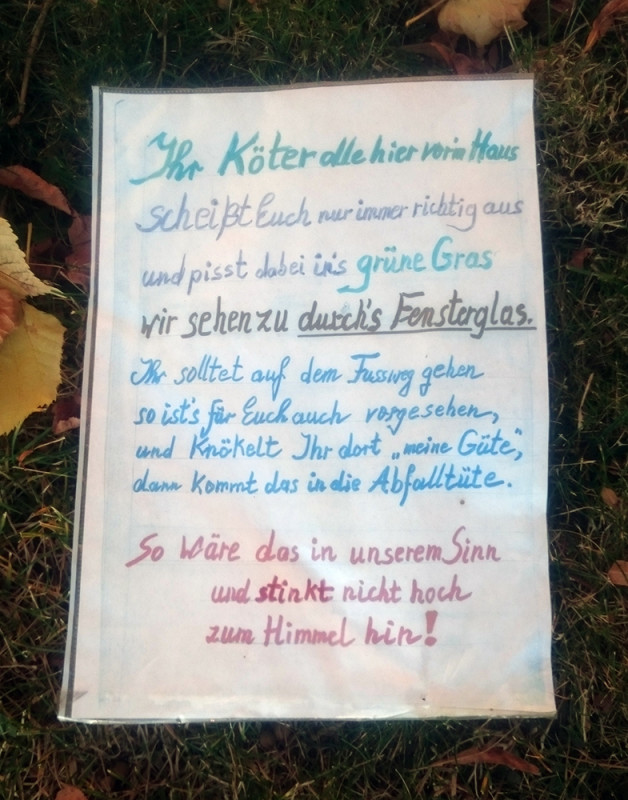 Ihr Köter alle hier vorm Haus
scheißt Euch nur immer richtig aus
und pisst dabei in's grüne Gras
wir sehen zu durch's Fensterglas.
Ihr solltet auf dem Fussweg gehen
so ist's für Euch auch vorgesehen,
und Knökelt Ihr dort „meine Güte",
dann kommt das in die Abfalltüte.
So wäre das in unserem Sinn
und stinkt nicht hoch
zum Himmel hin!